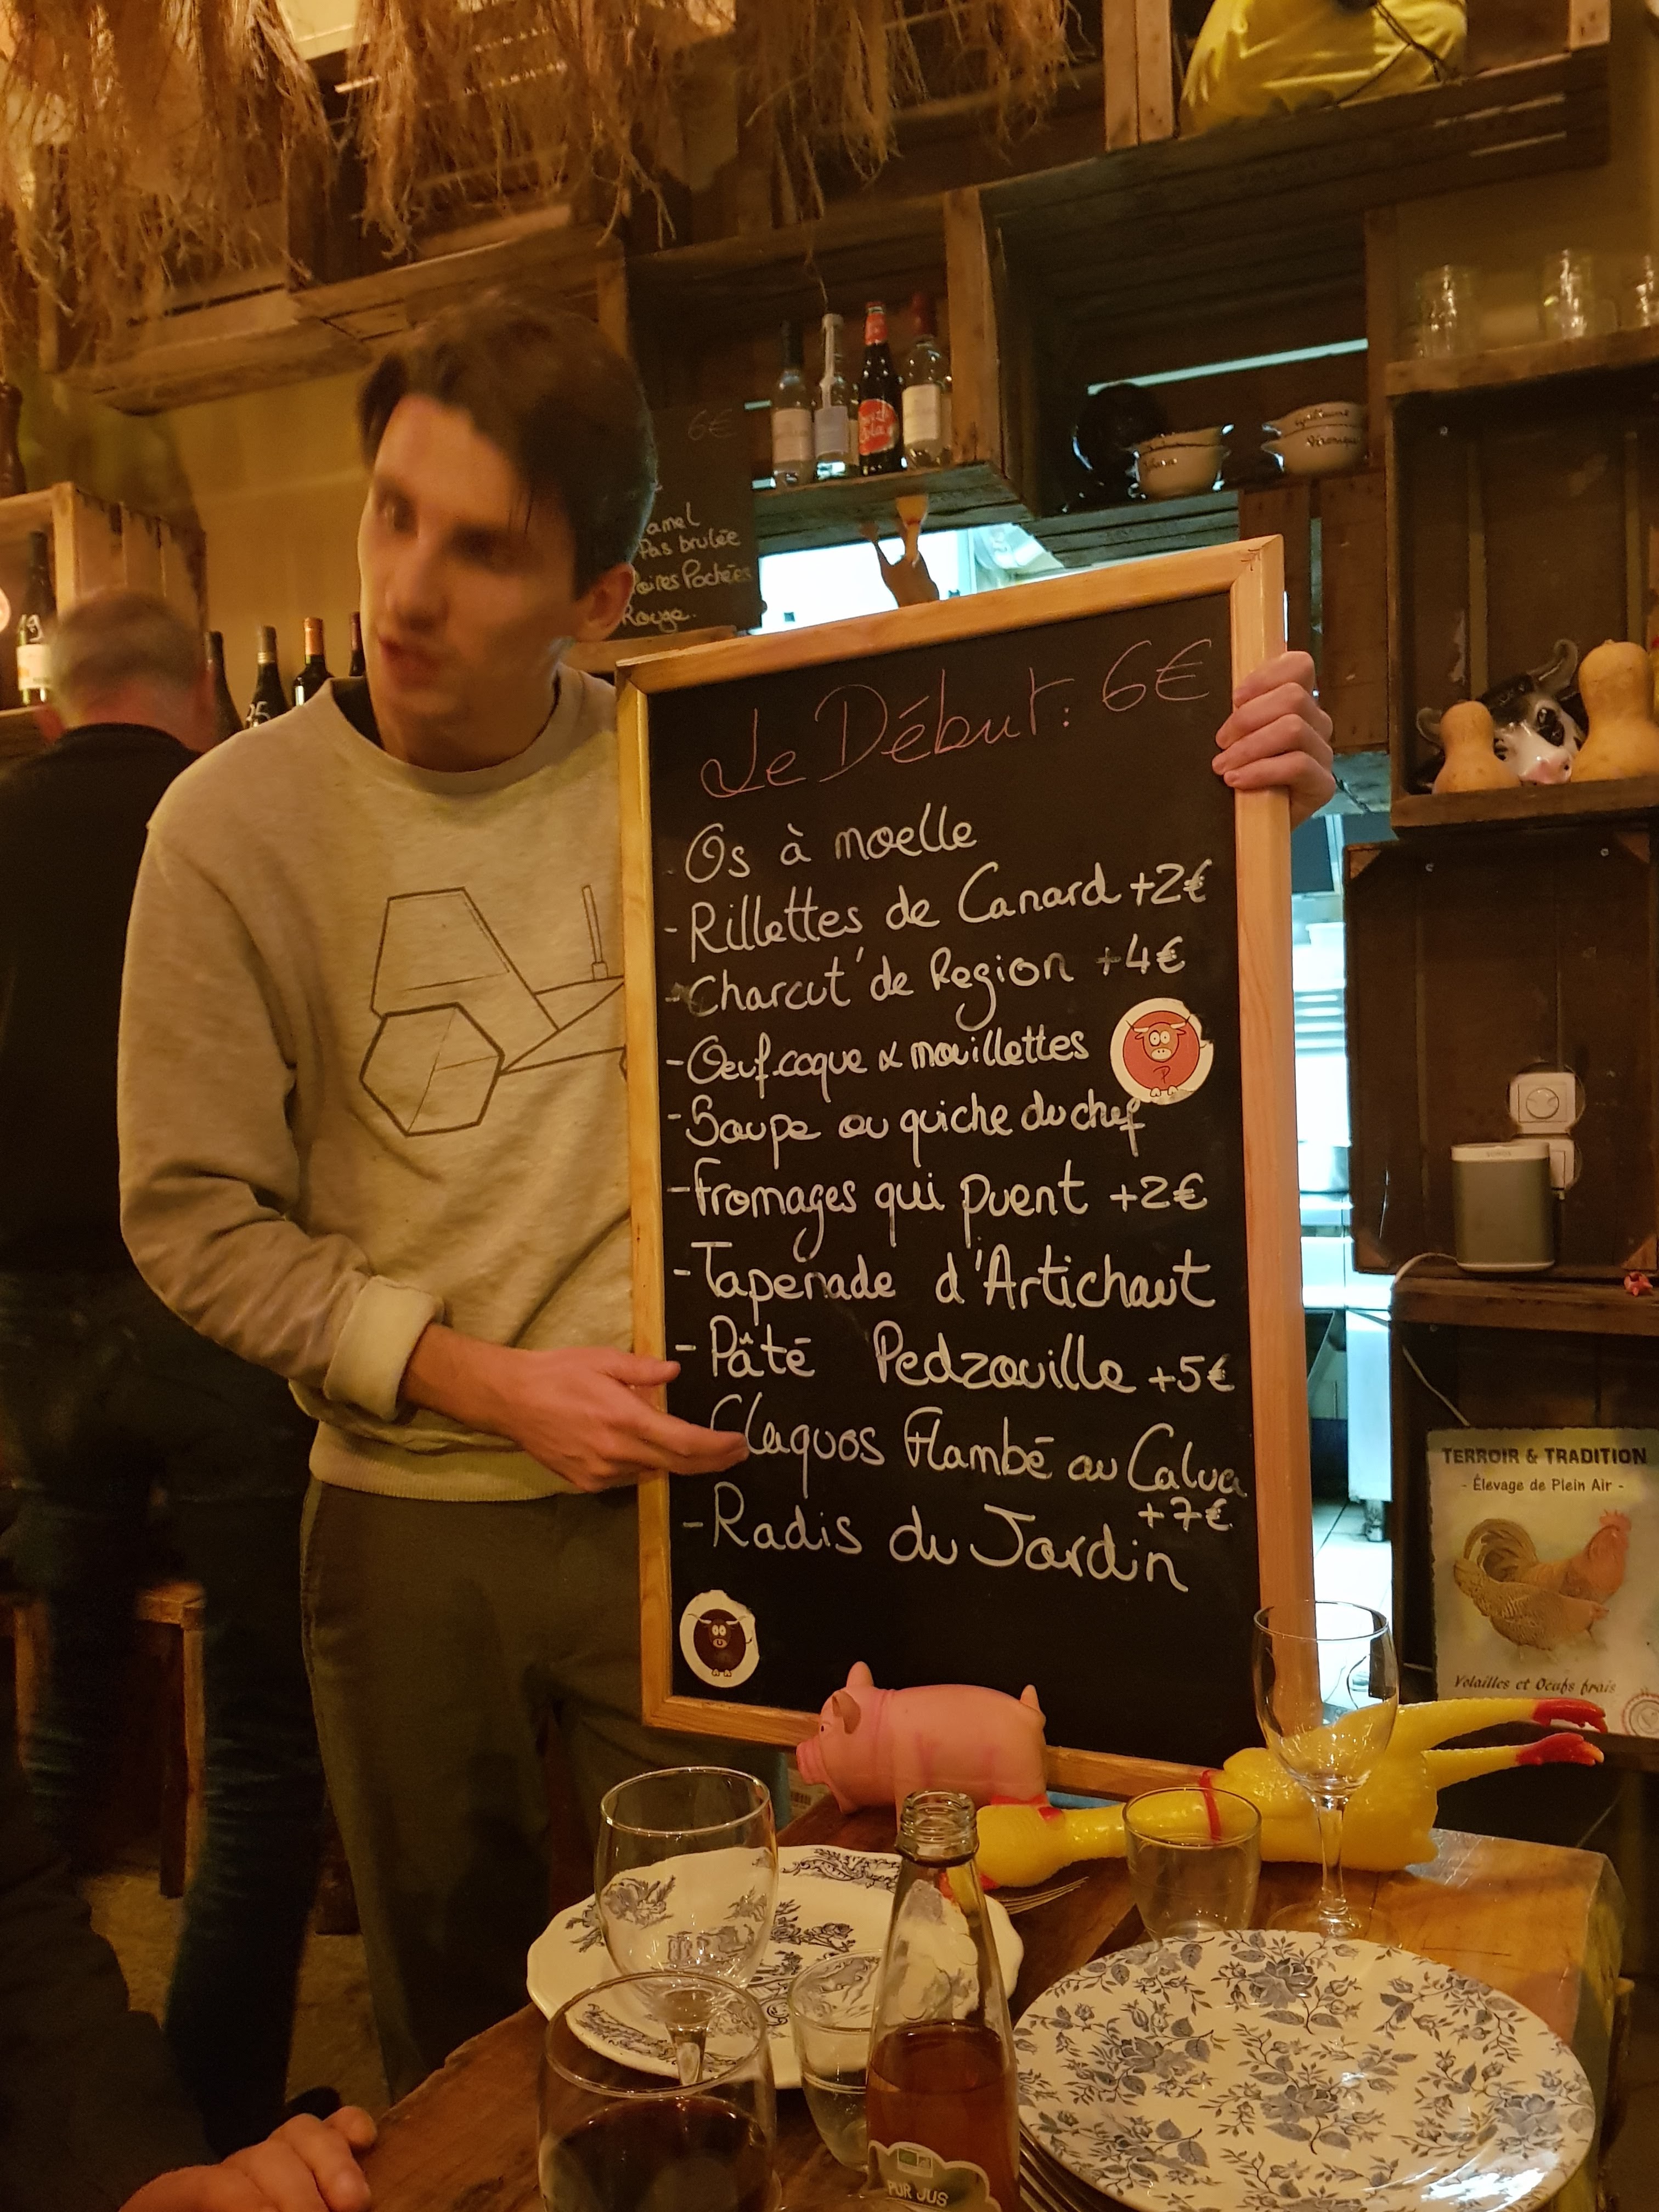 6€
amel
Pas brulée
Poires Pochées
Rouge.
Le Début: 6€
Os à moelle
- Rillettes de Canard +2€
- Charcut' de Region +4€
- Oeuf coque & mouillettes
- Soupe ou quiche du chef
- Fromages qui puent +2€
- Tapenade d'Artichaut
- Pâté Pedzouille +5€
Claquos Flambé au Calva
+7€
- Radis du Jardin
TERROIR & TRADITION
- Élevage de Plein Air -
Volailles et Oeufs frais
SONOS
Véronique
PUR JUS